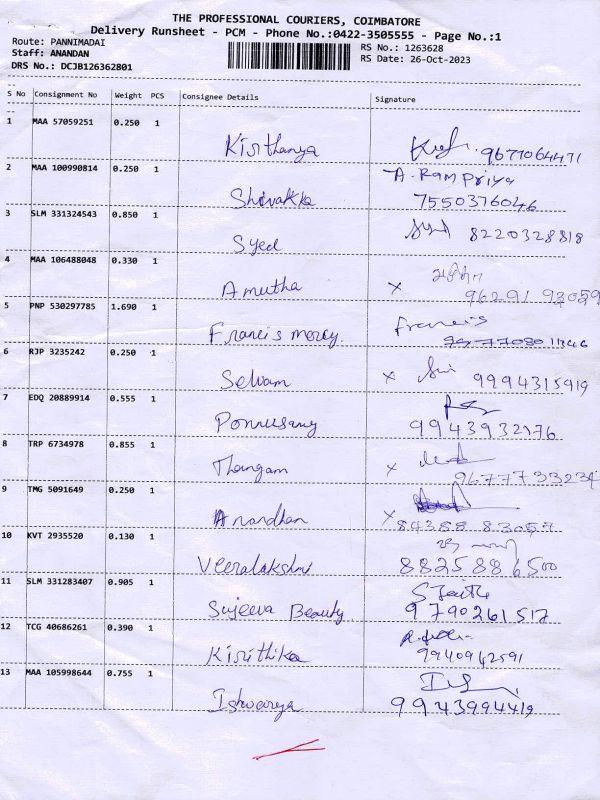 THE PROFESSIONAL COURIERS, COIMBATORE
Delivery Runsheet - PCM - Phone No.:0422-3505555 - Page No.:1
Route: PANNIMADAI
RS No.: 1263628
Staff: ANANDAN
RS Date: 26-Oct-2023
DRS No.: DCJB126362801
S No Consignment No Weight PCS Consignee Details Signature
1 MAA 57059251 0.250 1
Kirthanya 9677064471
2 MAA 100990814 0.250 1 A. Rampriya
Shivakka 7550376046
3 SLM 331324543 0.850 1
Syed 8220328818
4 MAA 106488048 0.330 1
Amutha x 96291 93059
5 PNP 530297785 1.690 1 Francis
Francis mercy.
6 RJP 3235242 0.250 1
Selvam x 9994315919
7 EDQ 20889914 0.555 1
Ponnusamy 9943932176
8 TRP 6734978 0.855 1
Thangam x 9677733234
9 TMG 5091649 0.250 1
Anandhan x 84388 83057
10 KVT 2935520 0.130 1
Veeralakshmi 8825886500
11 SLM 331283407 0.905 1
Sujeeva Beauty 9790261517
12 TCG 40686261 0.390 1
Kirithika 9940942591
13 MAA 105998644 0.755 1
Ishwarya 9943994419